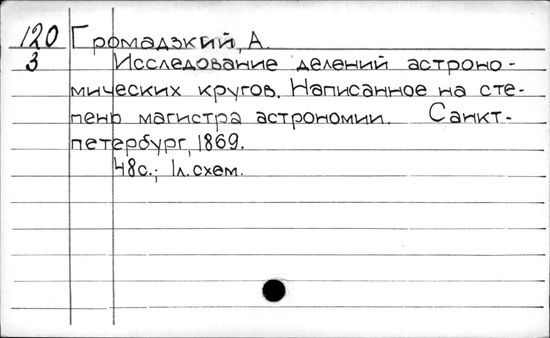 120 Громадзкий, А.
3 Исследование делений астроно-
мических кругов. Написанное на сте-
пень магистра астрономии. Санкт-
петербург, 1869.
48с.; 1л. схем.